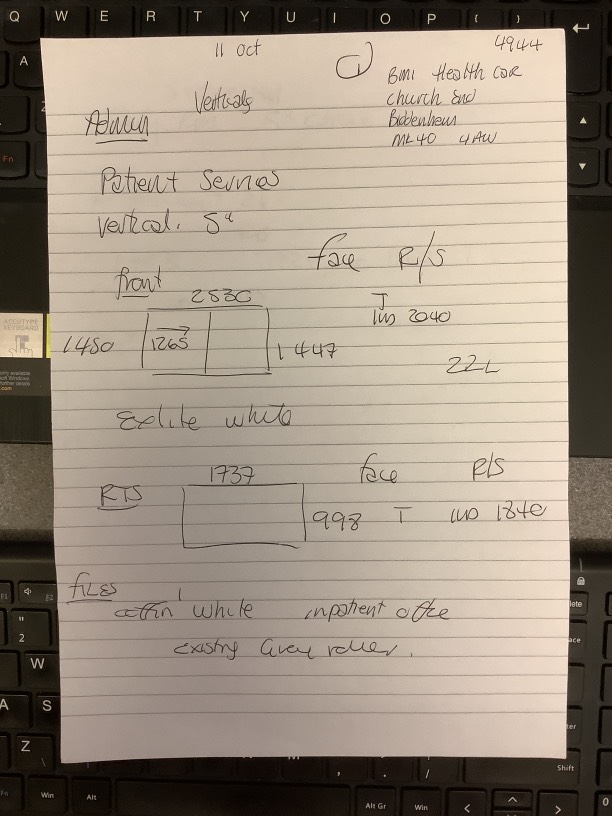 11 Oct
1
4944
BMI Health COR
Church End
Biddenham
MK40 4AW
Verticals
Admin
Patient Services
Vertical. 5"
face R/S
front
2530
T
IWS 2040
1480
1265
1447
22L
Exlite white
1737
face R/S
RTS
998 T IWS 1840
files
white inpatient office
existing Grey roller.
Q W E R T Y U I O P { }
A
Fn
ACCUTYPE
KEYBOARD
F1
F2
2
W
A S
Z
Win Alt
Alt Gr Win
Shift
0